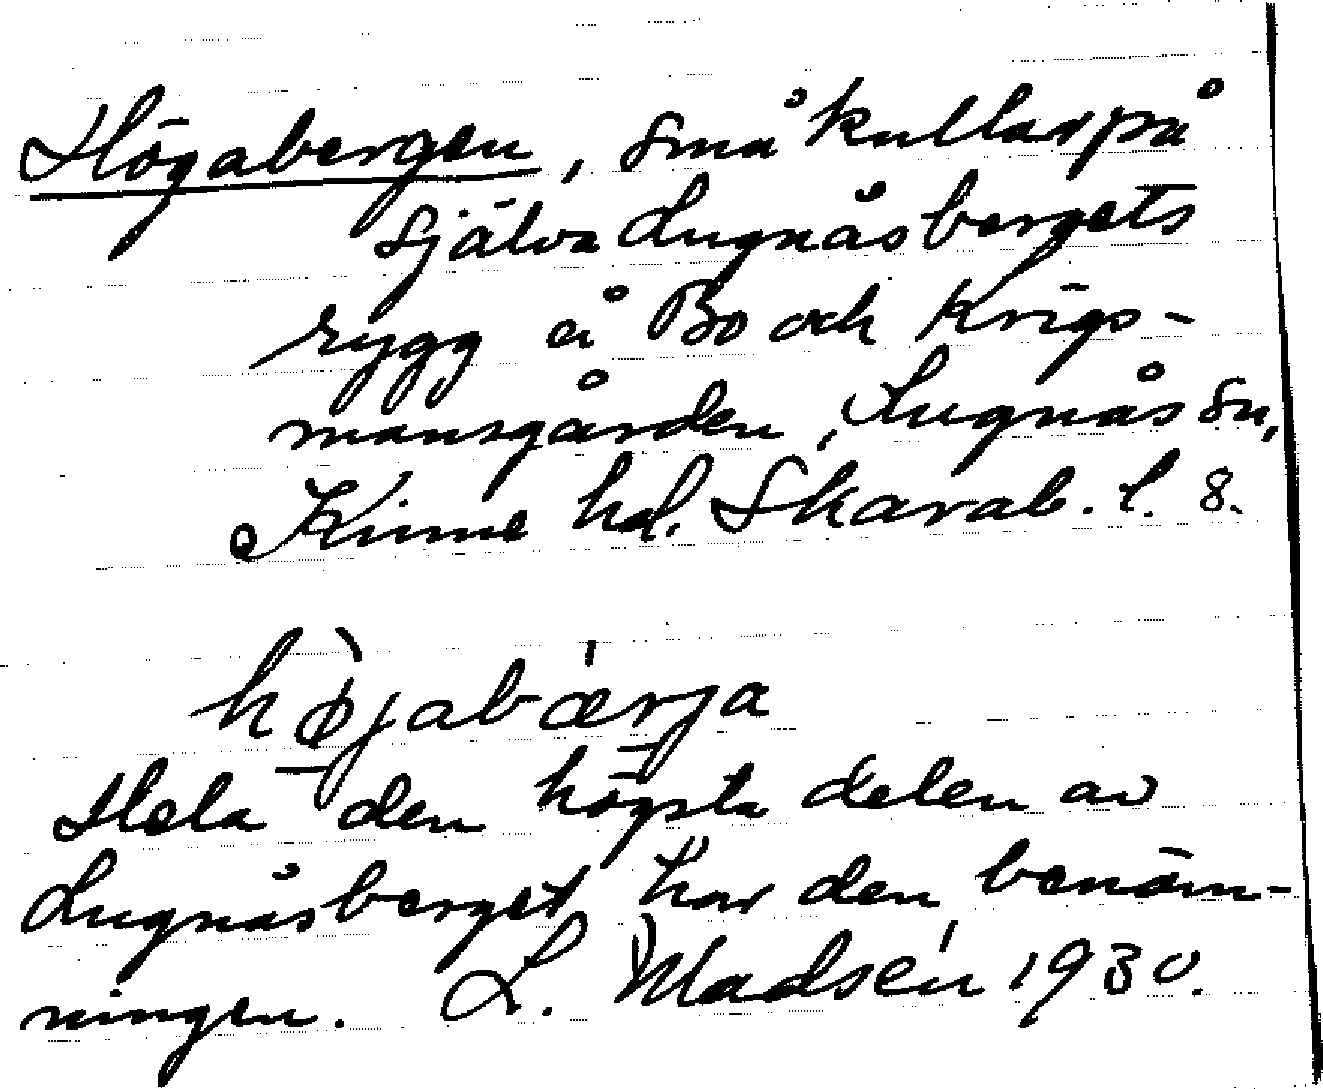 Högabergen, små kullar på
själva Lugnåsbergets
rygg å Bo och Krigs-
mansgården, Lugnås sn,
Kinne hd. Skarab. l. 8.
hø̀jabæ'rja
Hela den högsta delen av
Lugnåsberget har den benäm-
ningen. L. Madsén 1930.